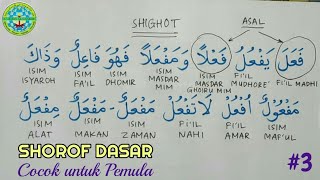 SHIGHOT ASAL
فَعَلَ يَفْعُلُ فَعْلًا وَمَفْعَلًا فَهُوَ فَاعِلٌ وَذَاكَ
ISIM ISIM ISIM ISIM ISIM FI'IL FI'IL MADHI
ISYAROH FA'IL DHOMIR MASDAR MASDAR MUDHORE'
MIM GHOIRU MIM
مَفْعُوْلٌ اُفْعُلْ لَا تَفْعُلْ مَفْعَلٌ - مَفْعَلٌ مِفْعَلٌ
ISIM ISIM ISIM FI'IL FI'IL ISIM
ALAT MAKAN ZAMAN NAHI AMAR MAF'UL
SHOROF DASAR
Cocok untuk Pemula
#3